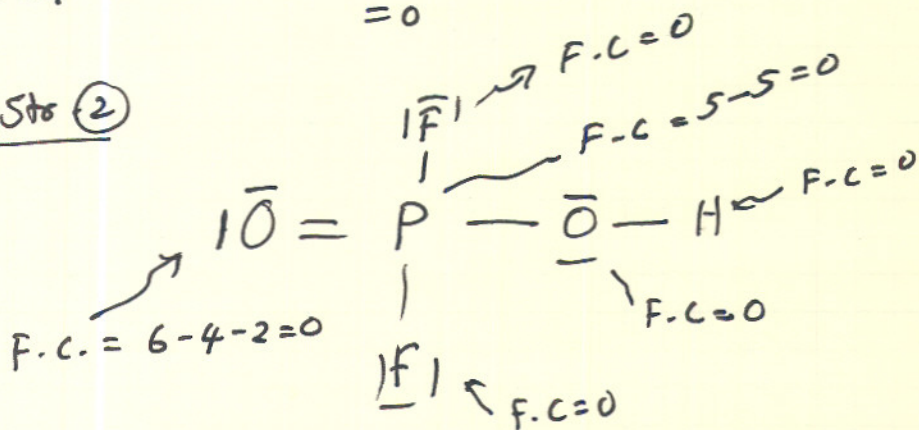 = 0
Str (2)
|F̅| → F.C = 0
F-C = 5-5 = 0
|O̅ = P — O̲̅ — H F.C = 0
F.C. = 6-4-2 = 0
F.C = 0
|F̲| F.C = 0